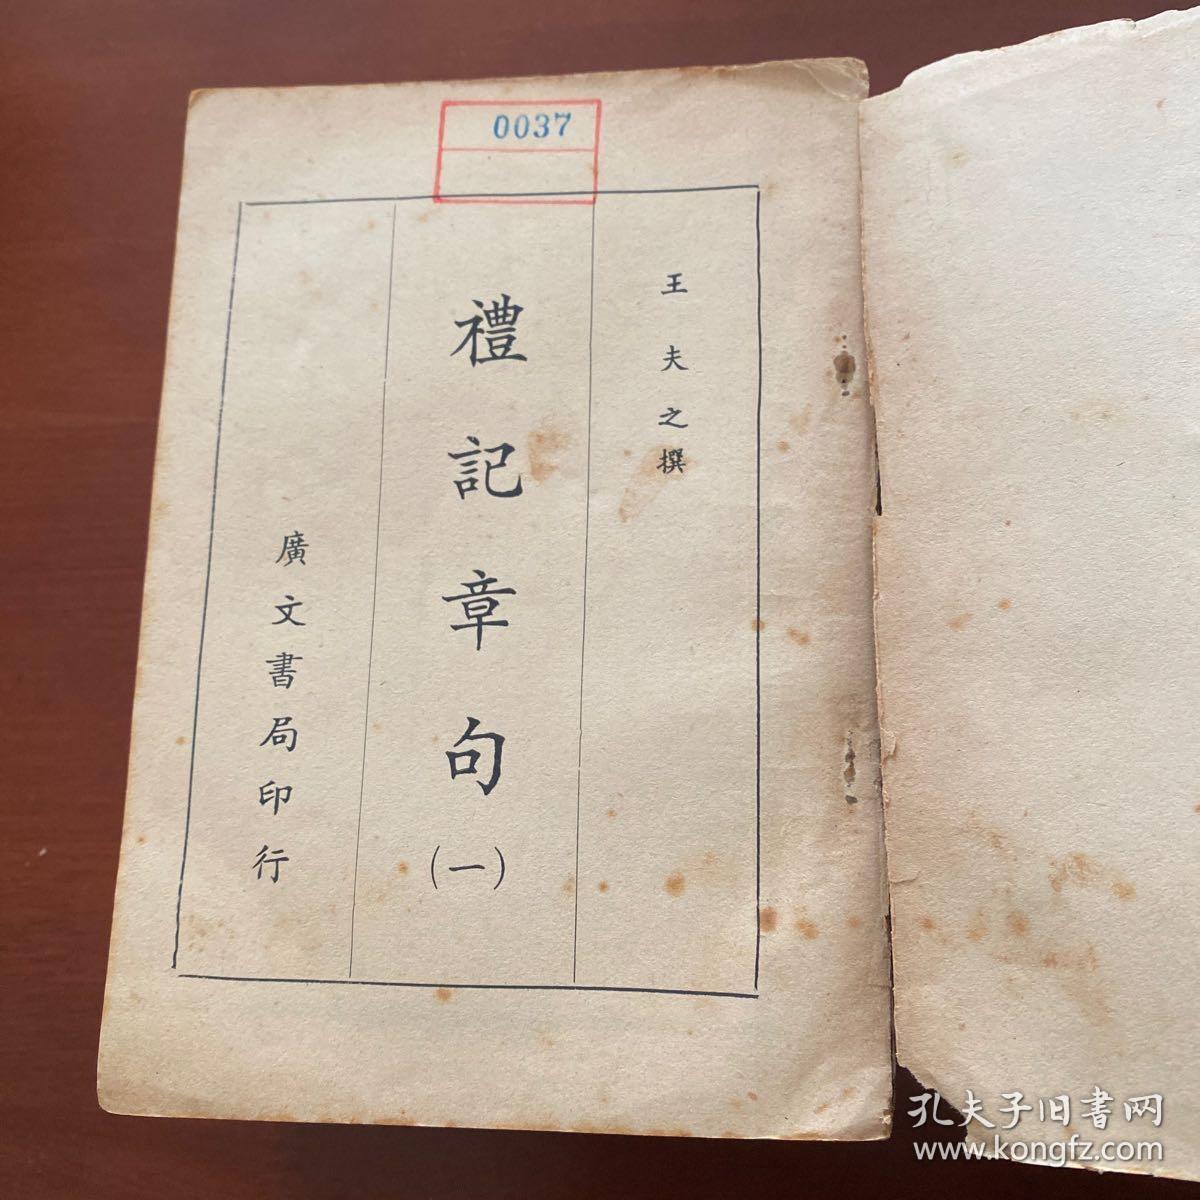 0037
王夫之撰
禮記章句
(一)
廣文書局印行
孔夫子旧書网
www.kongfz.com